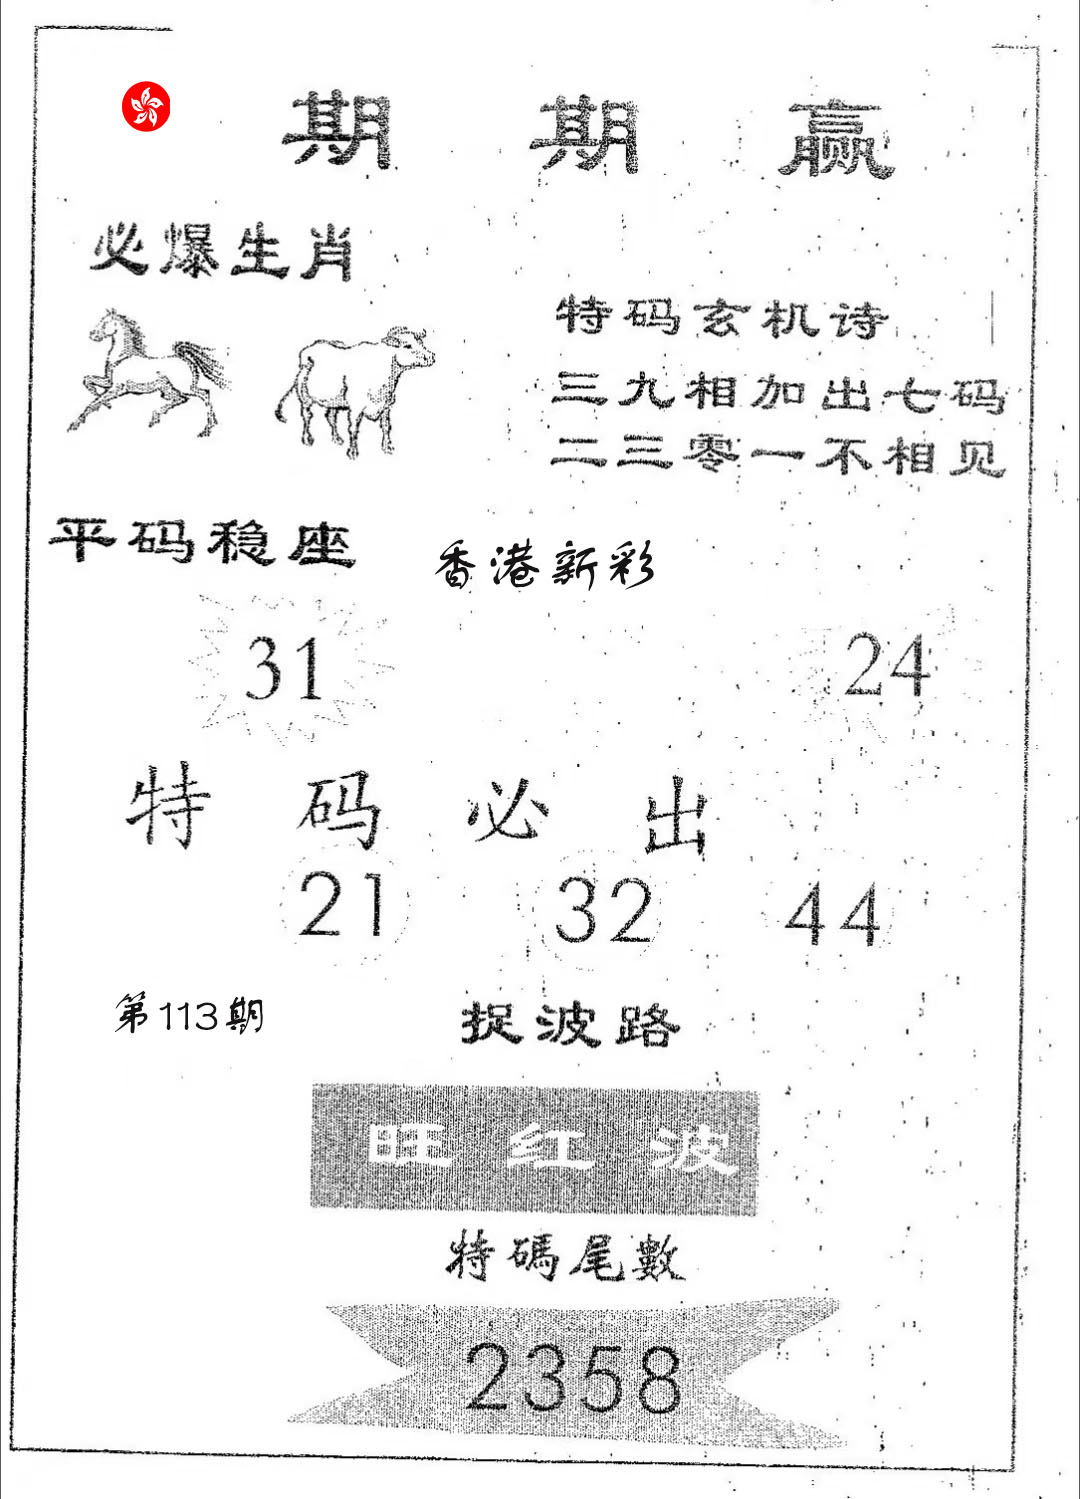 期期赢
必爆生肖
特码玄机诗
三九相加出七码
二三零一不相见
平码稳座
香港新彩
31 24
特码必出
21 32 44
第113期
捉波路
旺红波
特碼尾數
2358